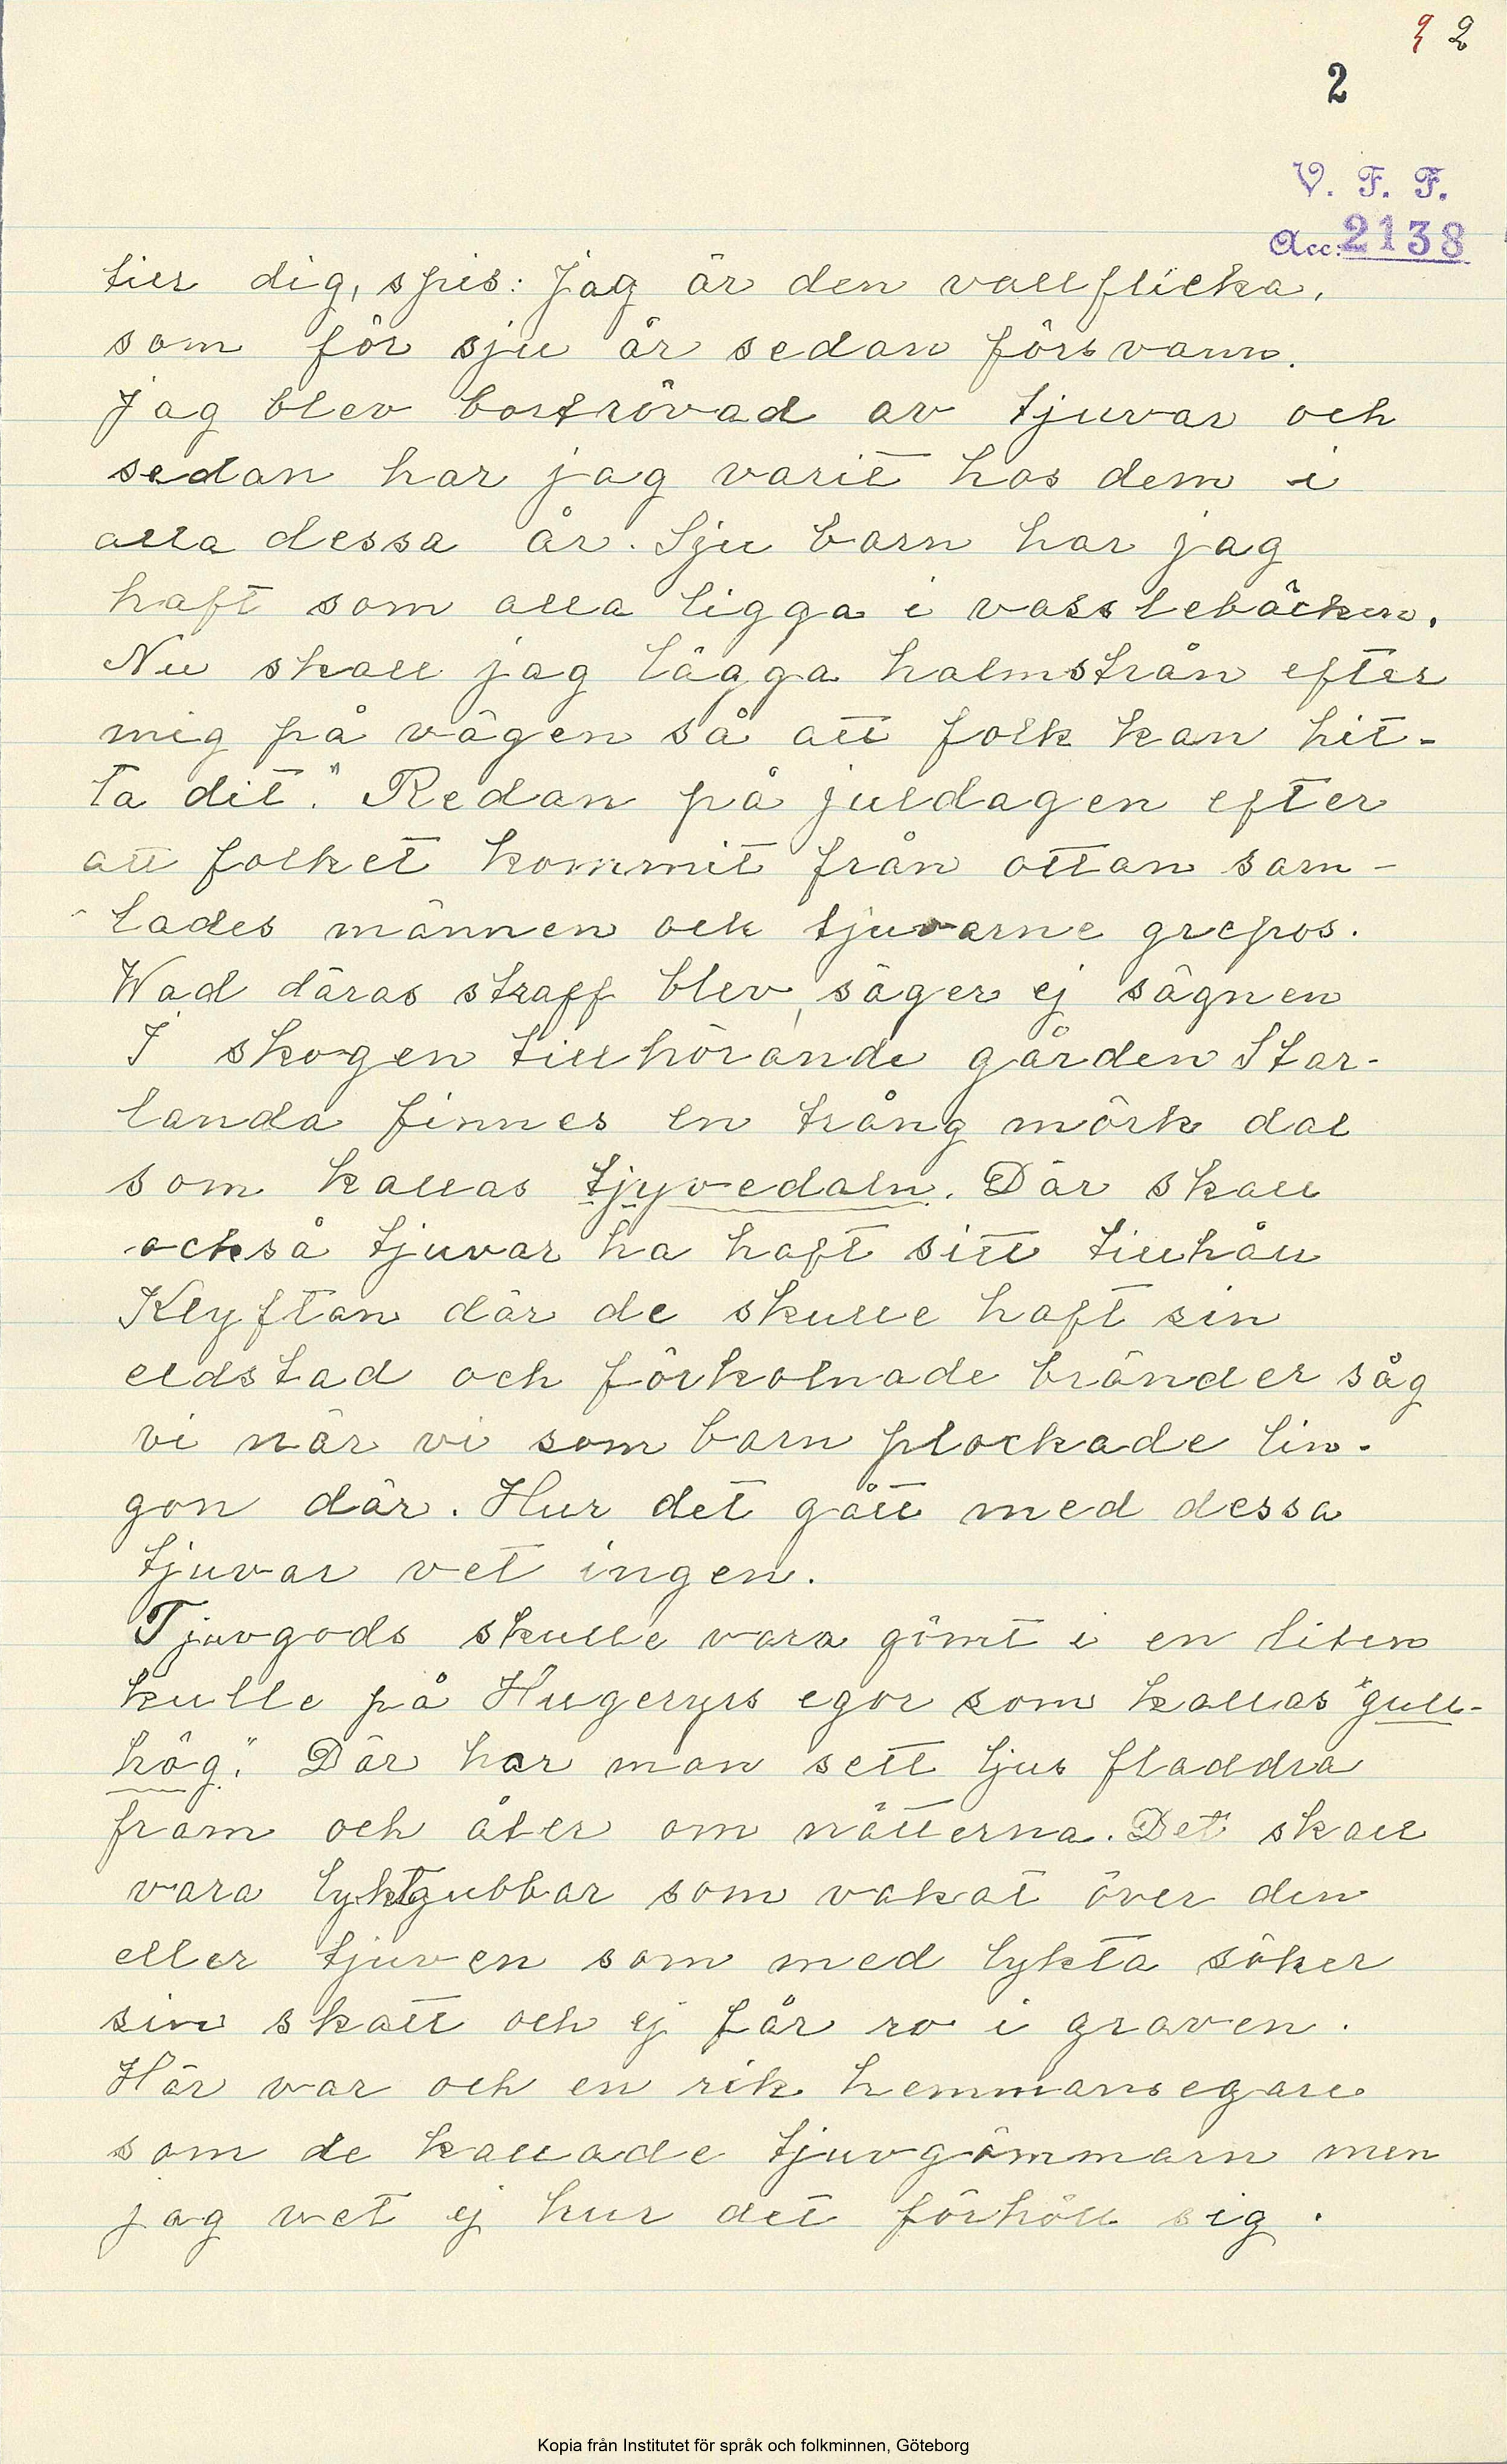 2
2
V. F. F.
Acc. 2138
till dig, spis: Jag är den vallflicka,
som för sju år sedan försvann.
Jag blev bortrövad av tjuvar och
sedan har jag varit hos dem i
alla dessa år. Sju barn har jag
haft som alla ligga i vasslebäcken.
Nu skall jag lägga halmstrån efter
mig på vägen så att folk kan hit-
ta dit." Redan på juldagen efter
att folket kommit från ottan sam-
lades männen och tjuvarne grepos.
Wad däras straff blev, säger ej sägnen
I skogen tillhörande gården Stor-
landa finnes en trång mörk dal
som kallas tjyvedaln. Där skall
också tjuvar ha haft sitt tillhåll
Klyftan där de skulle haft sin
eldstad och förkolnade bränder såg
vi när vi som barn plockade lin-
gon där. Hur det gått med dessa
tjuvar vet ingen.
Tjuvgods skulle vara gömt i en liten
kulle på Hugeryrs egor som kallas "gull-
hög". Där har man sett ljus fladdra
fram och åter om nätterna. Det skall
vara lyktgubbar som vakat över den
eller tjuven som med lykta söker
sin skatt och ej får ro i graven.
Här var och en rik hemmansegare
som de kallade tjuvgömmarn men
jag vet ej hur det förhöll sig.
Kopia från Institutet för språk och folkminnen, Göteborg